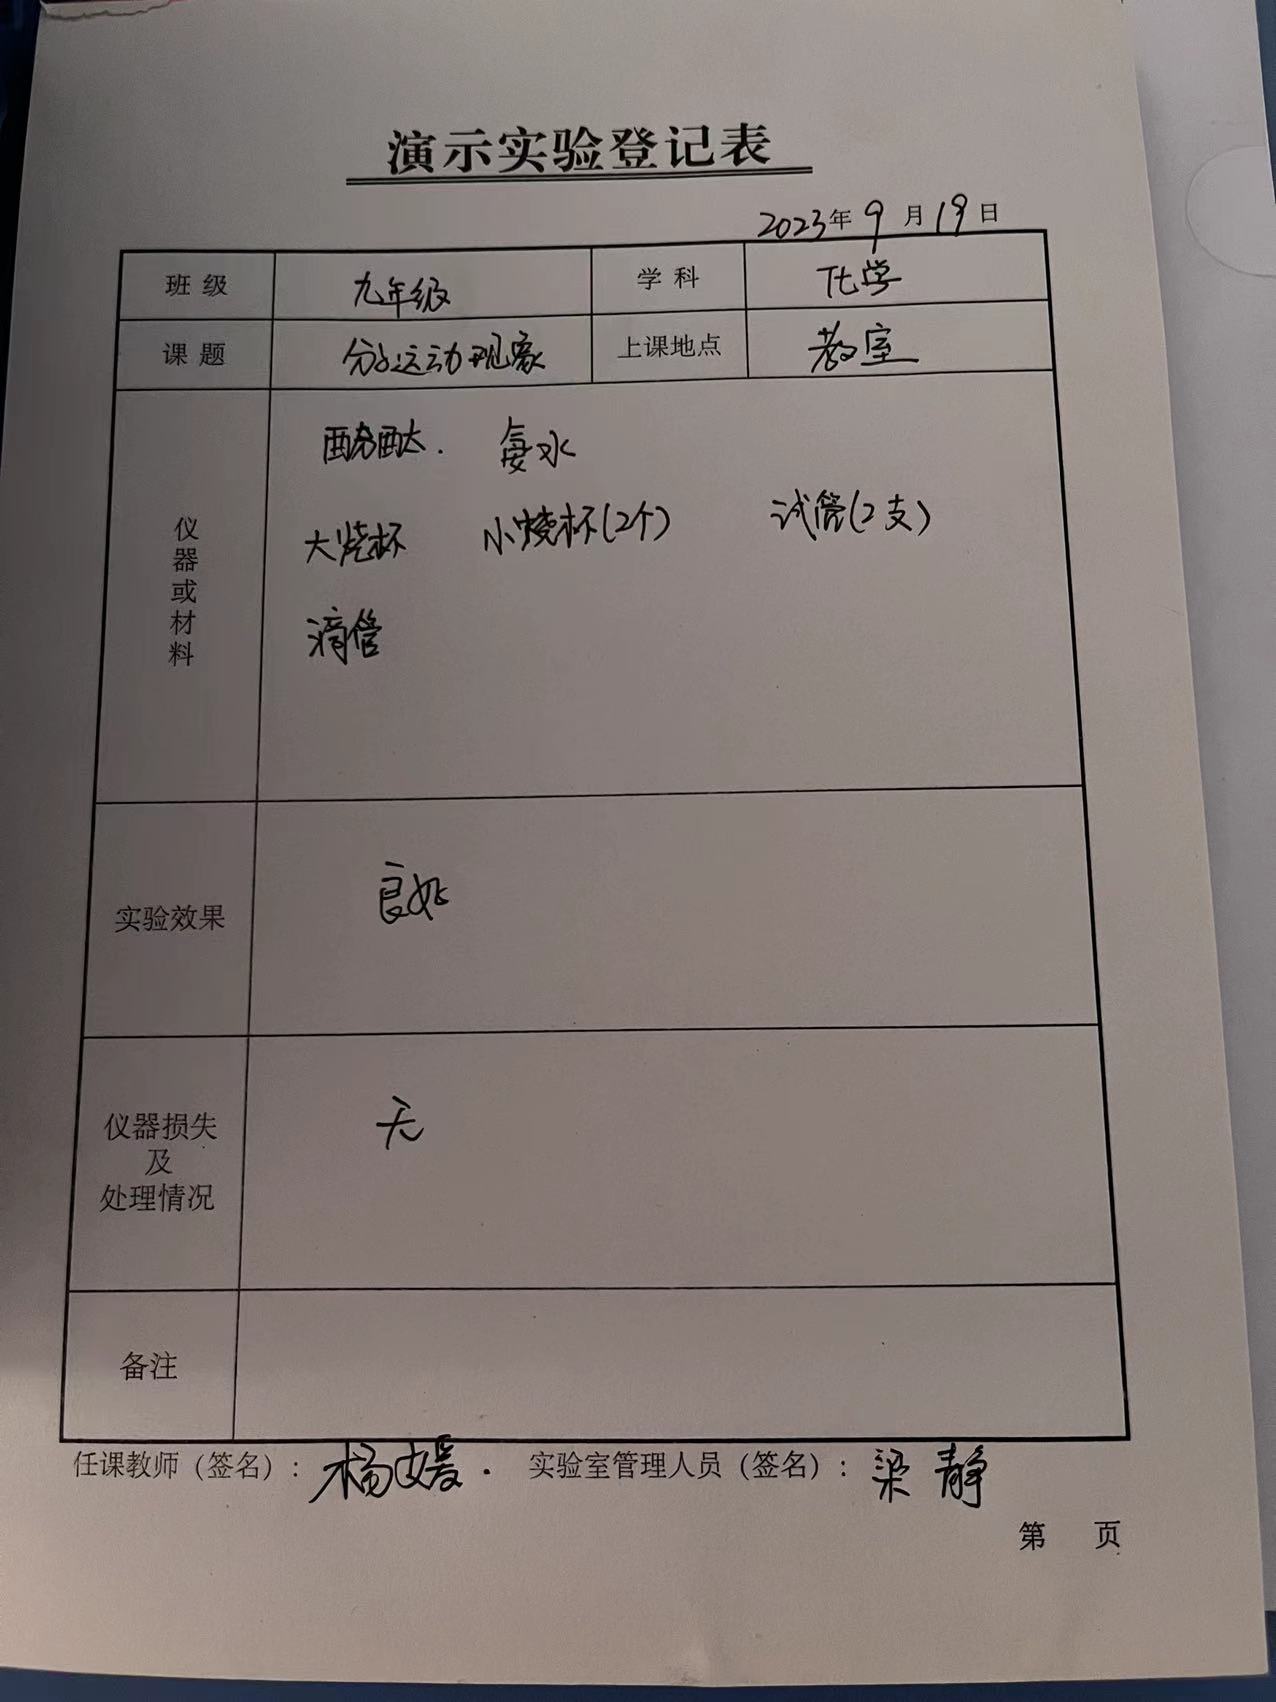 演示实验登记表
2023年9月19日
班级 九年级 学科 化学
课题 分子运动现象 上课地点 教室
仪器或材料
酚酞. 氨水
大烧杯 小烧杯(2个) 试管(2支)
滴管
实验效果 良好
仪器损失及处理情况 无
备注
任课教师（签名）：杨媛. 实验室管理人员（签名）：梁静
第 页